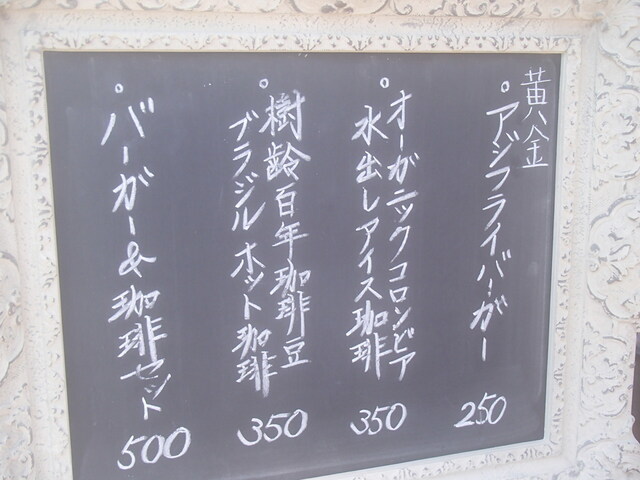 黄金
アジフライバーガー
250
オーガニックコロンビア
水出しアイス珈琲
350
樹齢百年珈琲豆
ブラジルホット珈琲
350
バーガー&珈琲セット
500